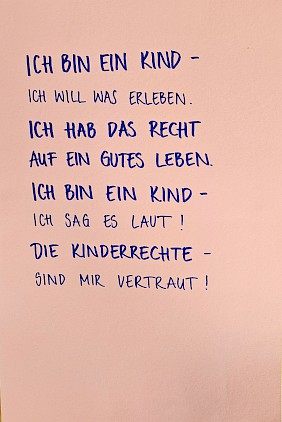 ICH BIN EIN KIND -
ICH WILL WAS ERLEBEN.
ICH HAB DAS RECHT
AUF EIN GUTES LEBEN.
ICH BIN EIN KIND -
ICH SAG ES LAUT !
DIE KINDERRECHTE -
SIND MIR VERTRAUT !